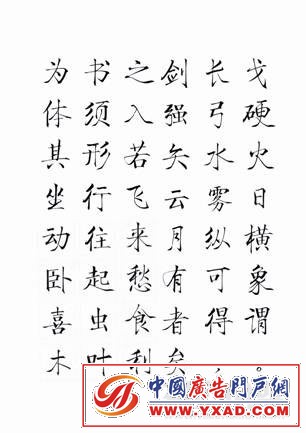 为书之
体须入
其形若
坐行飞
动往来
卧起愁
喜虫食
木叶利
剑长戈
强弓硬
矢水火
云雾日
月纵横
有可象
者得谓
矣，。
中國廣告門戶網
WWW.YXAD.COM